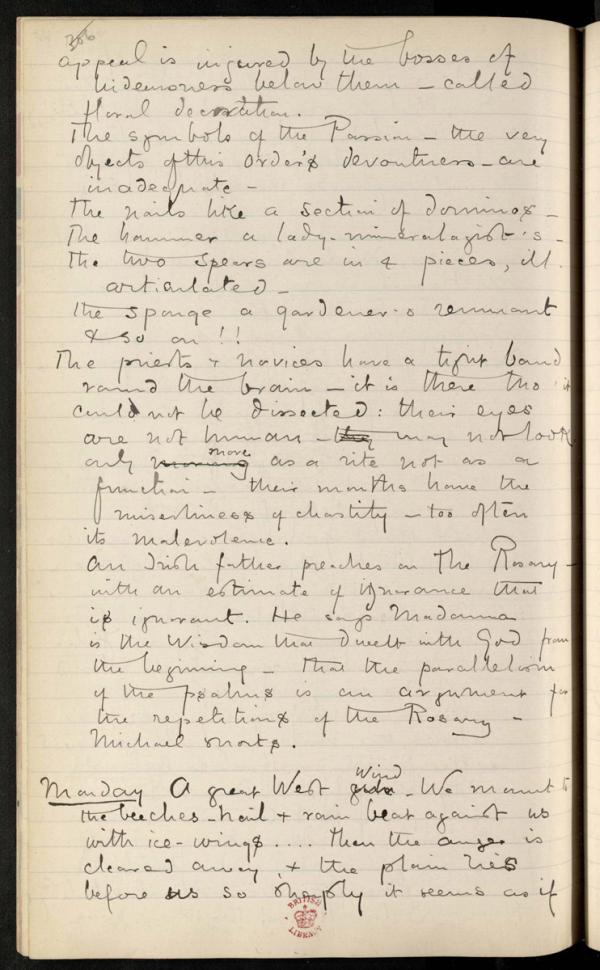 366
appeal is injured by the bosses of
hideousness below them – called
floral decoration.
The symbols of the Passion – the very
objects of this Order's devoutness – are
inadequate –
The nails like a section of dominos –
The hammer a lady-mineralogist's –
The two spears are in 4 pieces, ill-
articulated –
The sponge a gardener's remnant
& so on!!
The priests & novices have a tight band
round the brain – it is there tho' it
could not be dissected: their eyes
are not human – they may not look
only moving more as a rite not as a
function – their mouths have the
miserliness of chastity – too often
its malevolence.
An Irish father preaches on The Rosary –
with an estimate of ignorance that
is ignorant. He says Madonna
is the Wisdom that dwelt with God from
the beginning – that the parallelism
of the psalms is an argument for
the repetitions of the Rosary –
Michael snorts.
Monday A great West Wind – We mount to
the beeches – hail & rain beat against us
with ice-wings.... then the anger is
cleared away, & the plain lies
before us so sharply it seems as if
BRITISH
LIBRARY